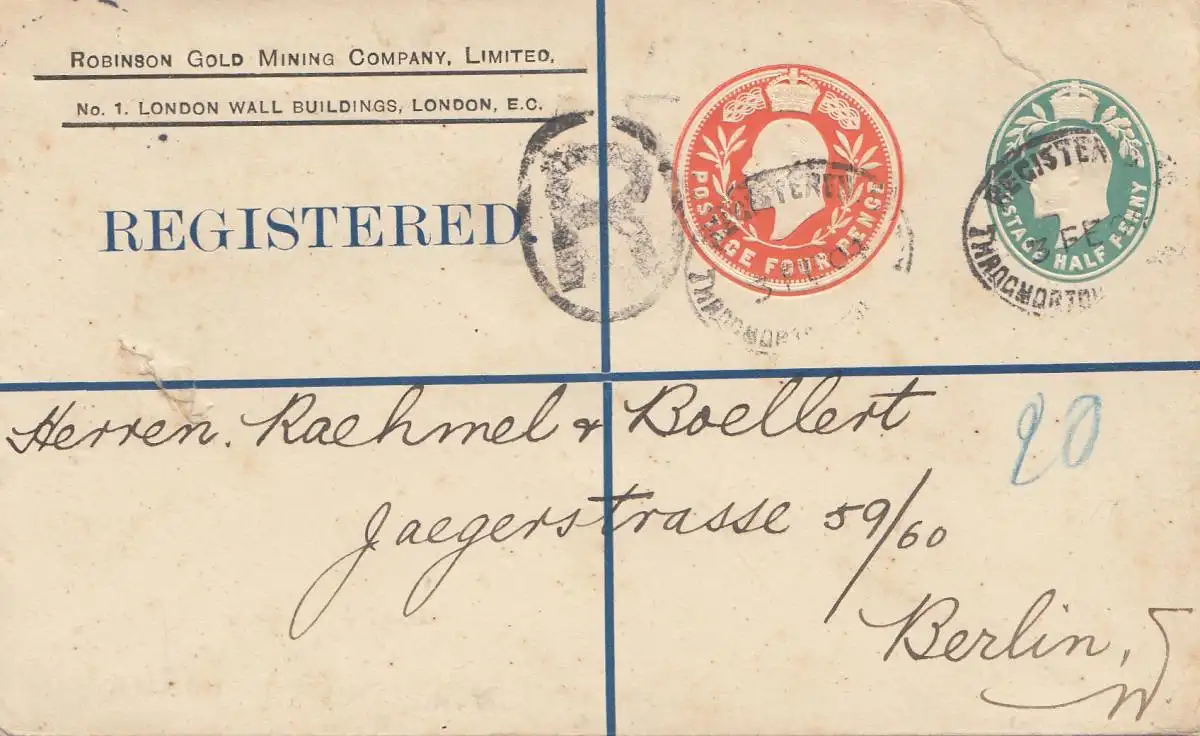 ROBINSON GOLD MINING COMPANY, LIMITED,
No. 1. LONDON WALL BUILDINGS, LONDON, E.C.
REGISTERED
R
POSTAGE FOUR PENCE
POSTAGE HALF PENNY
REGISTERED
THROGMORTON
REGISTERE
3 FE
THROGMORTON
Herren. Raehmel & Boellert
20
Jaegerstrasse 59/60
Berlin, W.